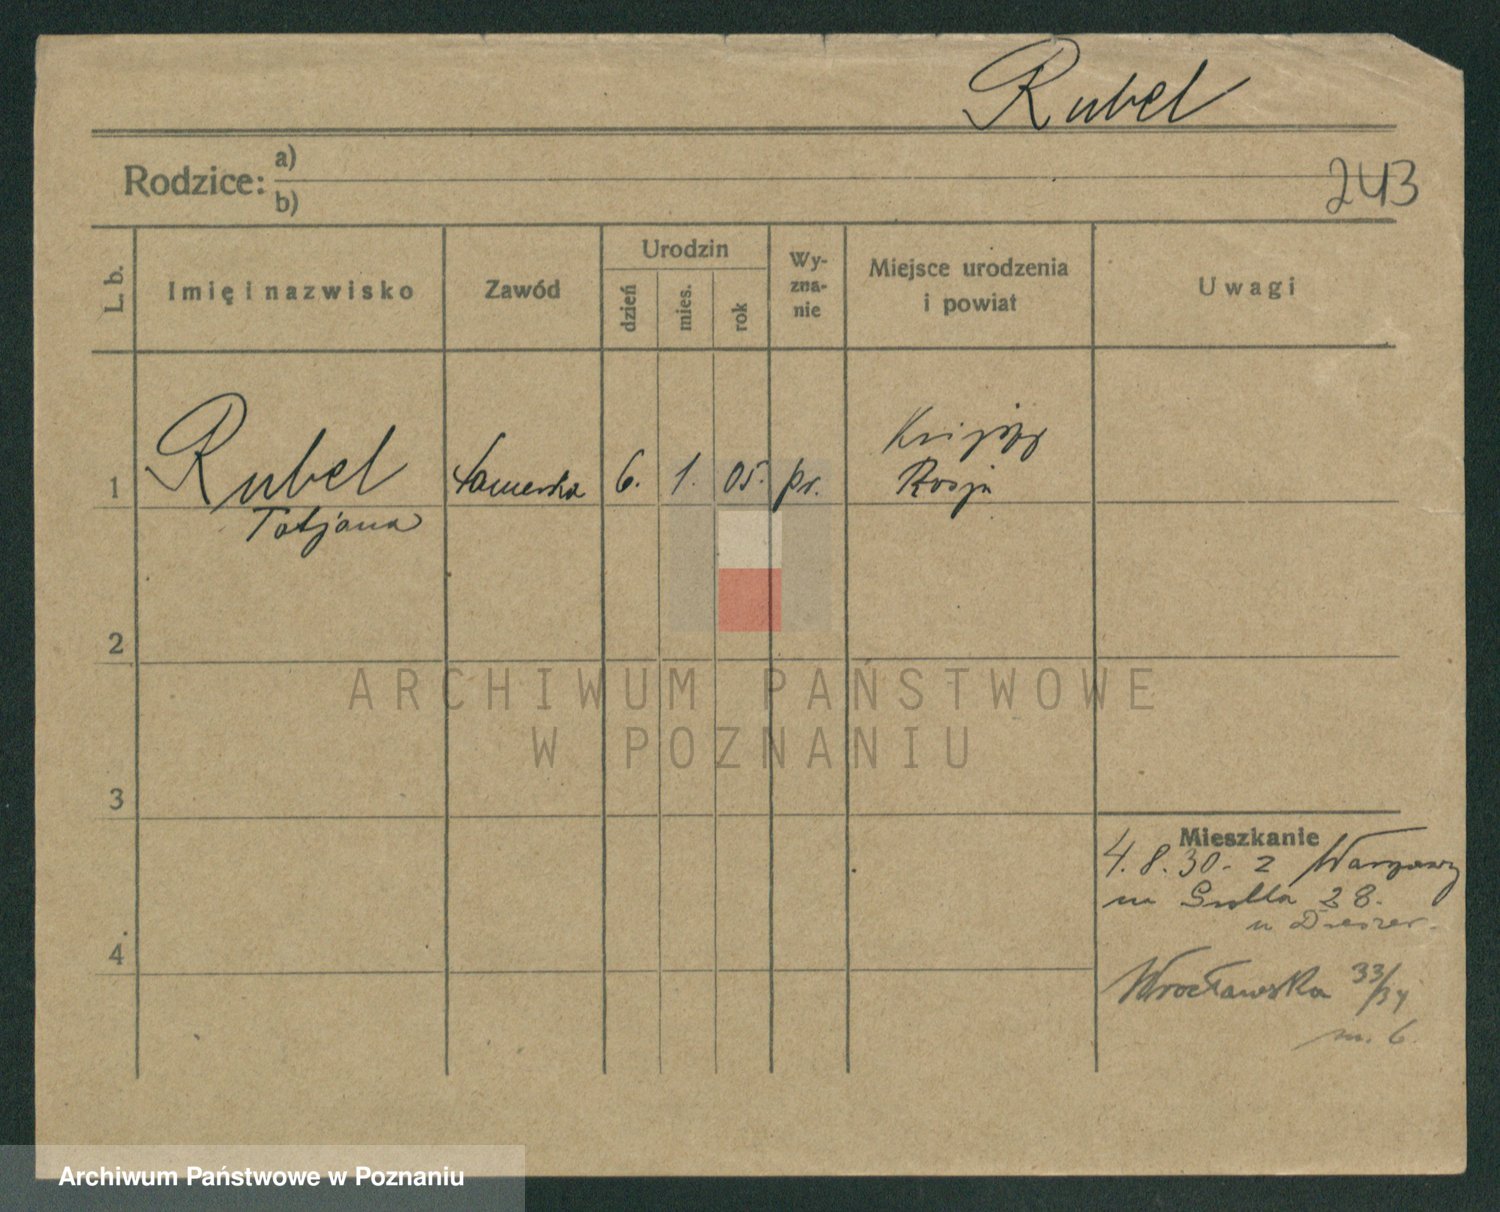 Rubel
Rodzice: a)
b)
243
L. b.
Imię i nazwisko
Zawód
Urodzin
dzień
mies.
rok
Wy-
zna-
nie
Miejsce urodzenia
i powiat
Uwagi
1
Rubel
Tatjana
6. 1. 05. pr.
Rosja
2
3
4
ARCHIWUM PAŃSTWOWE
W POZNANIU
Mieszkanie
4.8.30. z Warszawy
28.
Wrocławska 33/34
m. 6.
Archiwum Państwowe w Poznaniu